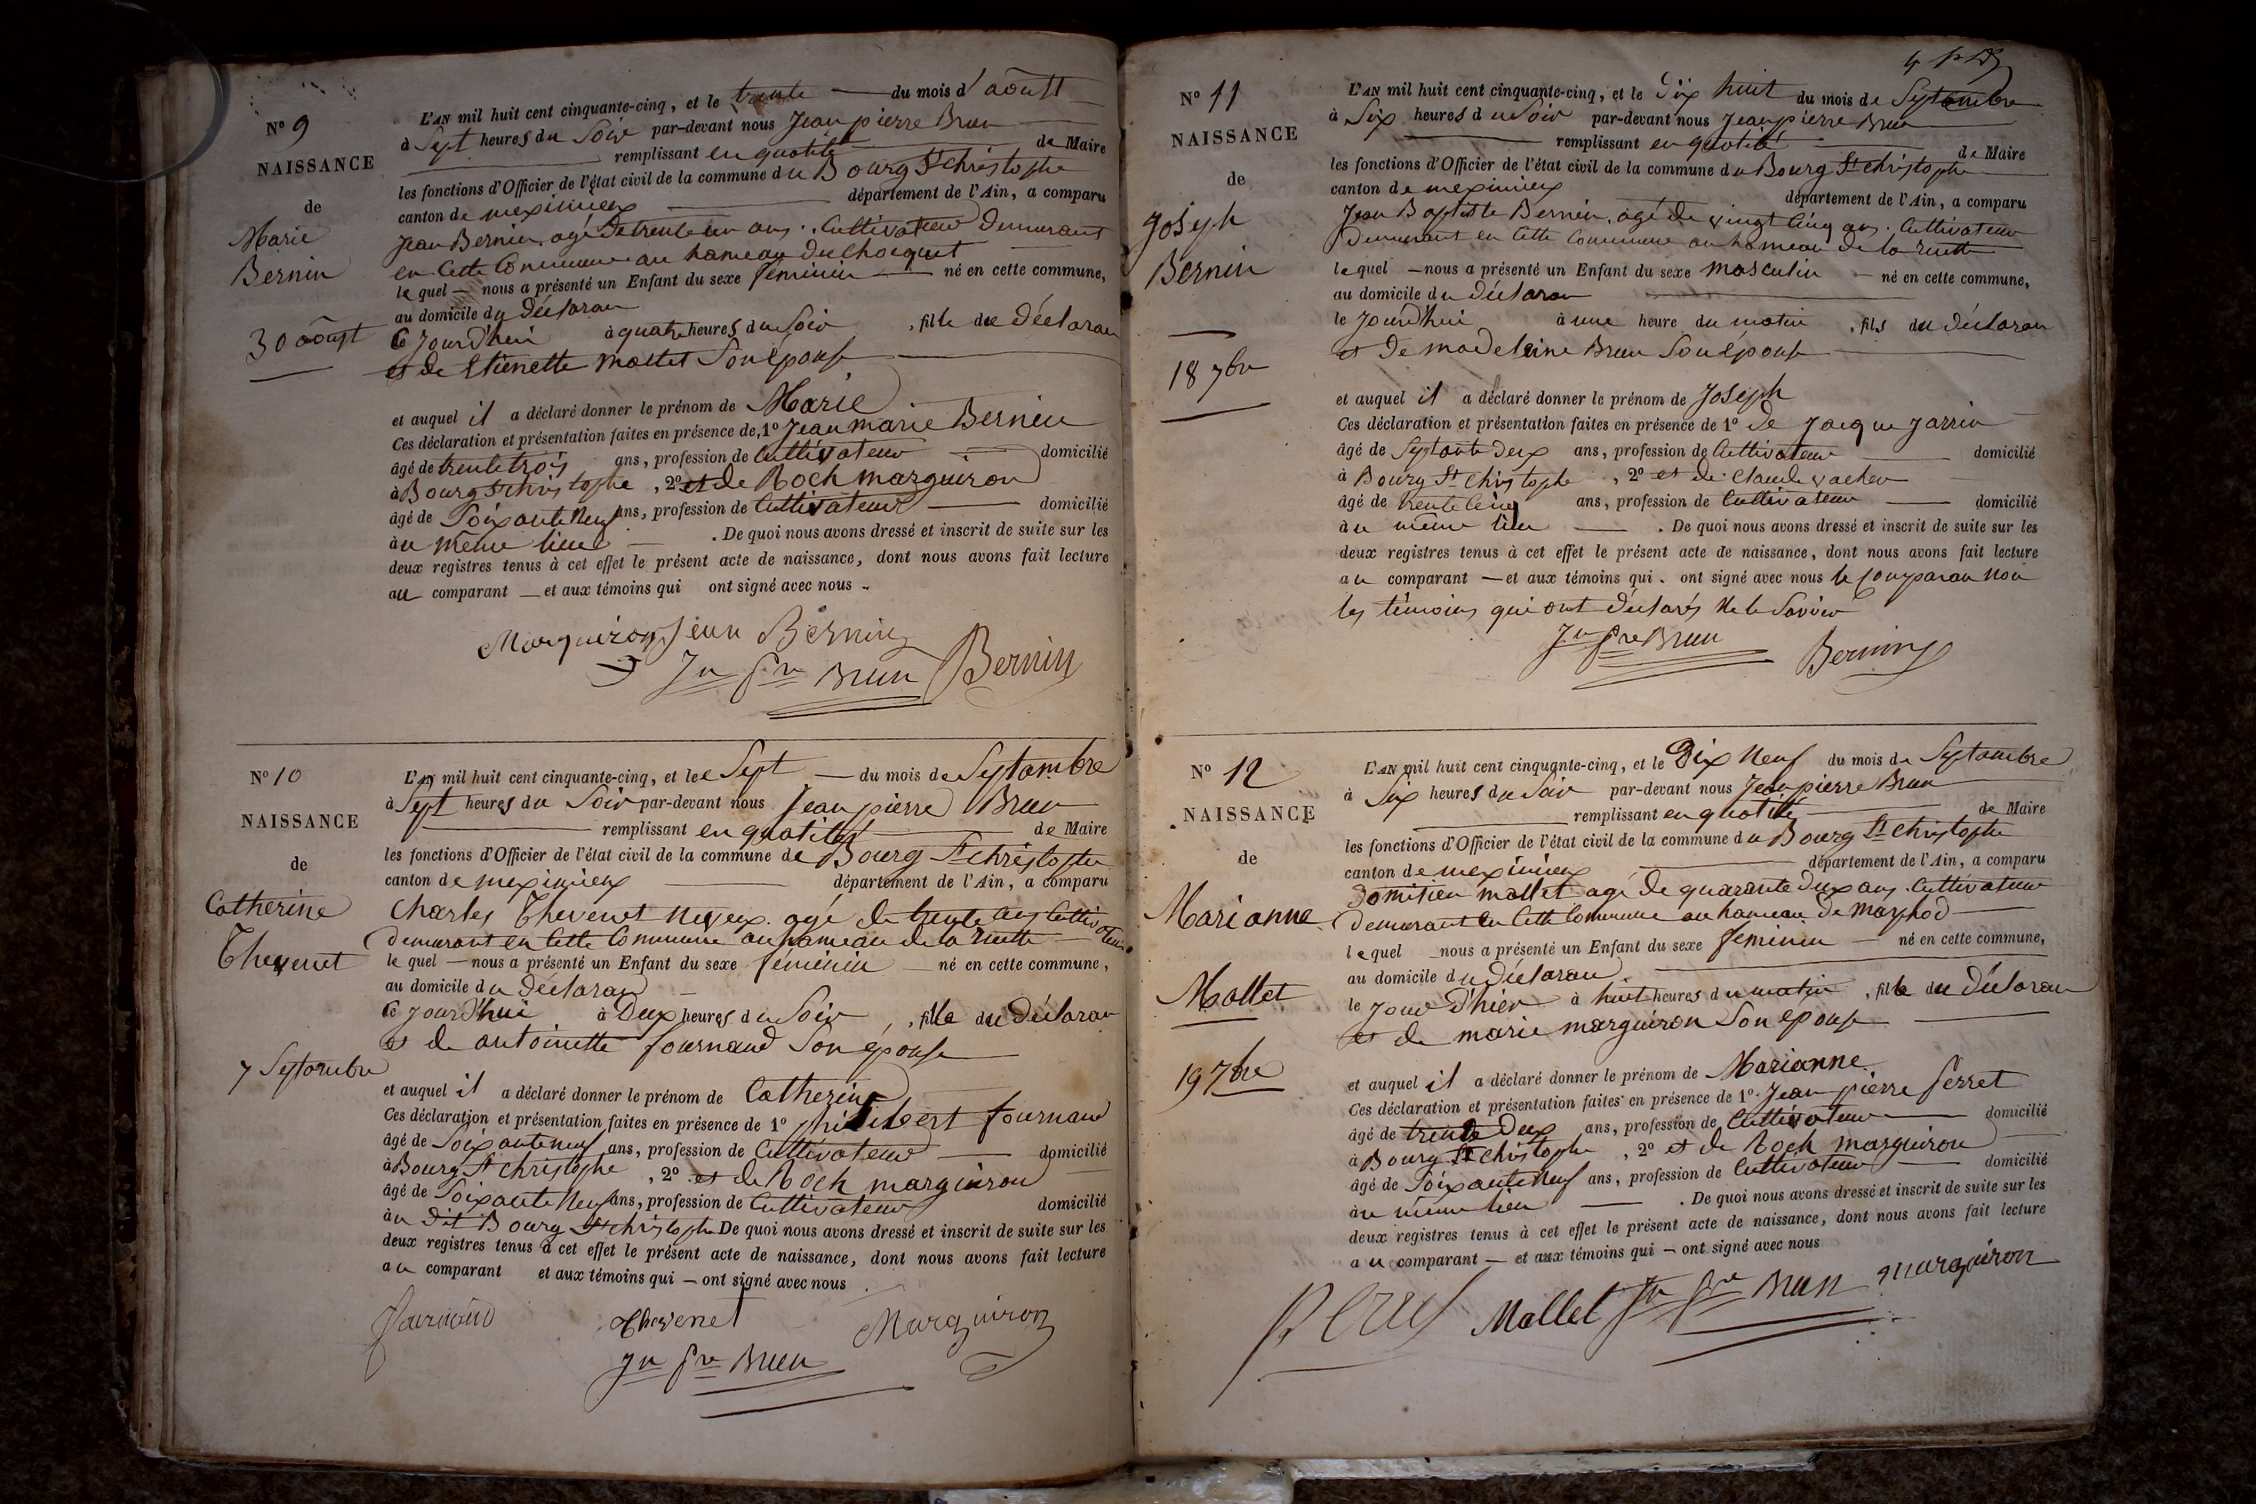 N° 9
NAISSANCE
de
Marie
Bernin
30 août
L'AN mil huit cent cinquante-cinq, et le trente du mois d'août
à Sept heures du Soir par-devant nous Jean pierre Brun
remplissant en quatité de Maire
les fonctions d'Officier de l'état civil de la commune du Bourg St christophe
canton de meximieux département de l'Ain, a comparu
Jean Bernin, agé de trente un ans. Cultivateur Demurant
en Cette Commune au hameau du chocquet
le quel nous a présenté un Enfant du sexe féminin né en cette commune,
au domicile du déclaran
Ce Jourd'hui à quatre heures du Soir, fille du déclaran
et de Etienette mallet Son épouse
et auquel il a déclaré donner le prénom de Marie
Ces déclaration et présentation faites en présence de, 1° Jean marie Bernin
âgé de trente trois ans, profession de Cultivateur domicilié
à Bourg St christophe, 2° et de Roch marguiron
âgé de Soixante Neuf ans, profession de Cultivateur domicilié
au même lieu. De quoi nous avons dressé et inscrit de suite sur les
deux registres tenus à cet effet le présent acte de naissance, dont nous avons fait lecture
au comparant et aux témoins qui ont signé avec nous
Marguiron Jean Bernin
Jn Pre Brun Bernin
N° 10
NAISSANCE
de
Catherine
Thevenet
7 Septembre
L'AN mil huit cent cinquante-cinq, et le Sept du mois de Septembre
à Sept heures du Soir par-devant nous Jean pierre Brun
remplissant en quatité de Maire
les fonctions d'Officier de l'état civil de la commune de Bourg St christophe
canton de meximieux département de l'Ain, a comparu
Charles Thevenet Neveux. agé de trente ans Cultivateur
demurant en Cette Commune au hameau de la ruette
le quel nous a présenté un Enfant du sexe féminin né en cette commune,
au domicile du déclaran
Ce Jourd'hui à Deux heures du Soir, fille du déclaran
et de antoinette fournand Son épouse
et auquel il a déclaré donner le prénom de Catherine
Ces déclaration et présentation faites en présence de 1° philibert fournand
âgé de Soixante neuf ans, profession de Cultivateur domicilié
à Bourg St christophe, 2° et de Roch marguiron
âgé de Soixante Neuf ans, profession de Cultivateur domicilié
au Dit Bourg St christophe De quoi nous avons dressé et inscrit de suite sur les
deux registres tenus à cet effet le présent acte de naissance, dont nous avons fait lecture
au comparant et aux témoins qui ont signé avec nous
Thevenet Marguiron
Jn Pre Brun
N° 11
NAISSANCE
de
Joseph
Bernin
18 7bre
L'AN mil huit cent cinquante-cinq, et le Dix huit du mois de Septembre
à Six heures du Soir par-devant nous Jean pierre Brun
remplissant en quatité de Maire
les fonctions d'Officier de l'état civil de la commune du Bourg St christophe
canton de meximieux département de l'Ain, a comparu
Jean Baptiste Bernin, agé de vingt Cinq ans. Cultivateur
Demurant en Cette Commune au hameau de la ruette
le quel nous a présenté un Enfant du sexe masculin né en cette commune,
au domicile du déclaran
le Jourd'hui à une heure du matin, fils du déclaran
et de madeleine Brun Son épouse
et auquel il a déclaré donner le prénom de Joseph
Ces déclaration et présentation faites en présence de 1° De Jacque Jarrin
âgé de Septante Deux ans, profession de Cultivateur domicilié
à Bourg St christophe, 2° et de Claude vacher
âgé de trente Cinq ans, profession de Cultivateur domicilié
au même lieu. De quoi nous avons dressé et inscrit de suite sur les
deux registres tenus à cet effet le présent acte de naissance, dont nous avons fait lecture
au comparant et aux témoins qui ont signé avec nous le Comparan Non
les témoins qui ont déclarés Ne le Savoir
Jn Pre Brun Bernin
N° 12
NAISSANCE
de
Marianne
Mallet
19 7bre
L'AN mil huit cent cinquante-cinq, et le Dix Neuf du mois de Septembre
à Six heures du Soir par-devant nous Jean pierre Brun
remplissant en quatité de Maire
les fonctions d'Officier de l'état civil de la commune du Bourg St christophe
canton de meximieux département de l'Ain, a comparu
Domitien mallet agé de quarante Deux ans. Cultivateur
demurant en Cette Commune au hameau de Marphod
le quel nous a présenté un Enfant du sexe féminin né en cette commune,
au domicile du déclaran
le Jour D'hier à huit heures du matin, fille du déclaran
et de marie marguiron Son épouse
et auquel il a déclaré donner le prénom de Marianne
Ces déclaration et présentation faites en présence de 1°. Jean pierre Perret
âgé de trente Deux ans, profession de Cultivateur domicilié
à Bourg St christophe, 2° et de Roch marguiron
âgé de Soixante Neuf ans, profession de Cultivateur domicilié
au même lieu. De quoi nous avons dressé et inscrit de suite sur les
deux registres tenus à cet effet le présent acte de naissance, dont nous avons fait lecture
au comparant et aux témoins qui ont signé avec nous
Mallet Jn Pre Brun Marguiron